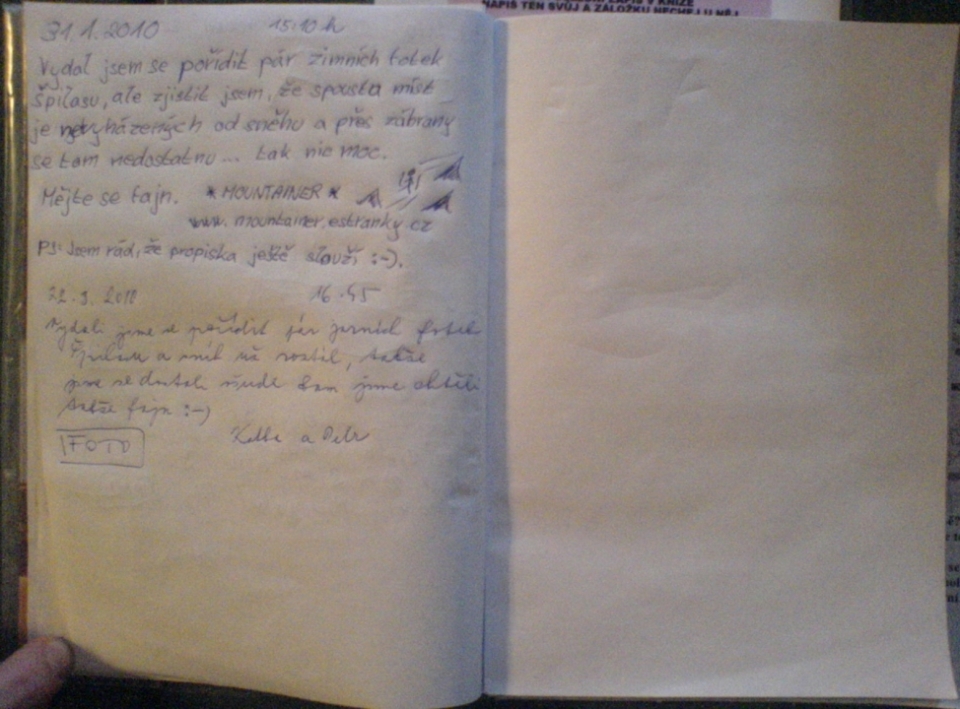 NAPIŠ TEN SVŮJ A ZÁLOŽKU NECHEJ U NĚJ
31.1.2010 15:10 h
Vydal jsem se pořídit pár zimních fotek
Špilasu, ale zjistil jsem, že spousta míst
je nevyházených od sněhu a přes zábrany
se tam nedostatnu... tak nic moc.
Mějte se fajn. * MOUNTAINER *
www.mountainer.estranky.cz
PS: Jsem rád, že propiska ještě slouží :-).
22.3.2010 16.45
Vydali jsme se pořídit pár jarních fotek
Špilasu a sníh už roztál, takže
jsme se dostali všude kam jsme chtěli
takže fajn :-)
FOTO a